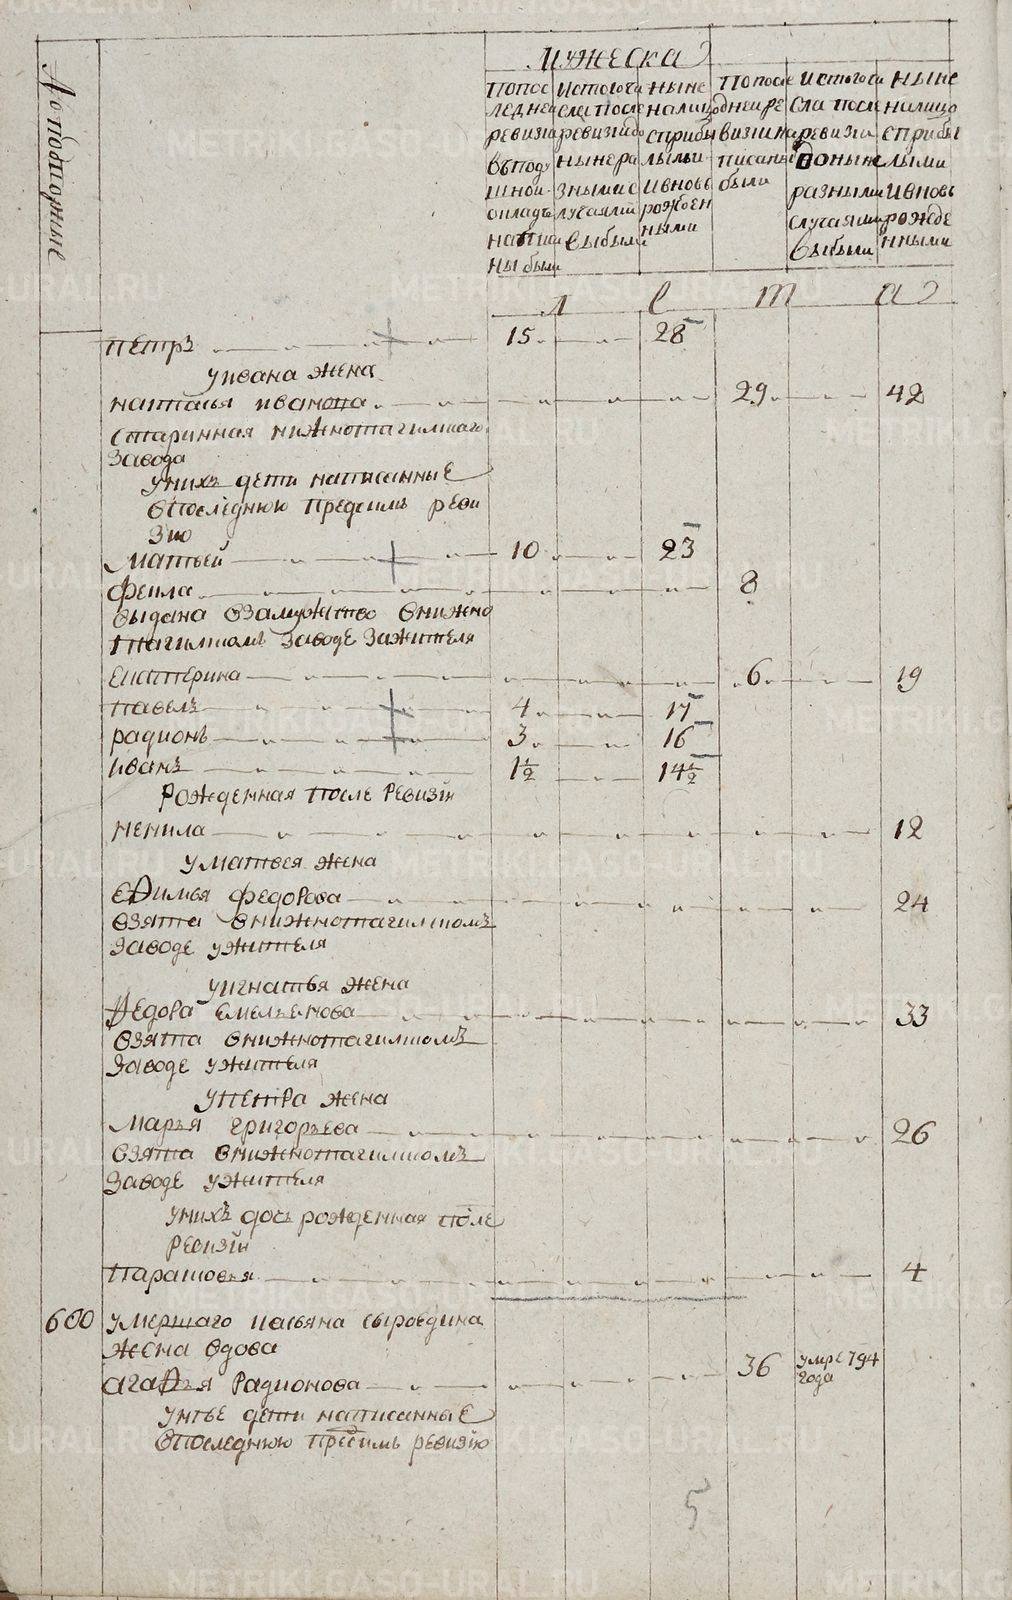 № подводные
мужеска
попос
леднеи
ревизи
вьпод
шнои
окладъ
напи
ны были
Истогочи
сла после
ревизиідо
ныне ра
зными с
лучаями
выбыли
ныне
налицо
сприбы
лыми
ивновь
рожден
ными
Попосле
днеи ре
визиина
писаны
были
Истогочи
сла после
ревизіи
доныне
разными
случаями
выбыли
ныне
налицо
сприбы
лыми
ивновь
рожде
нными
л е т а
петръ 15 28
уивана жена
наталья иванова 29 42
старинная нижнотагилскаго
завода
унихъ дети написанные
впоследнюю предсимъ реви
зию
матвей 10 23
фекла 8
выдана взамужство внижно
тагилскомъ заводе зажителя
екатерина 6 19
павелъ 4 17
радионъ 3 16
иванъ 1½ 14½
рожденная после ревизіи
ненила 12
уматвея жена
ефимья федорова 24
взята внижнотагилскомъ
заводе ужителя
уигнатья жена
федора емельенова 33
взята внижнотагилскомъ
заводе ужителя
упетра жена
марья григорьева 26
взята внижнотагилскомъ
заводе ужителя
унихъ дочь рожденная после
ревизіи
парасковья 4
600 умершаго касьяна сыроедина
жена вдова
агафья радионова 36 умре 794
года
унее дети написанные
впоследнюю предсимъ ревизію
5
METRIKI.GASO-URAL.RU